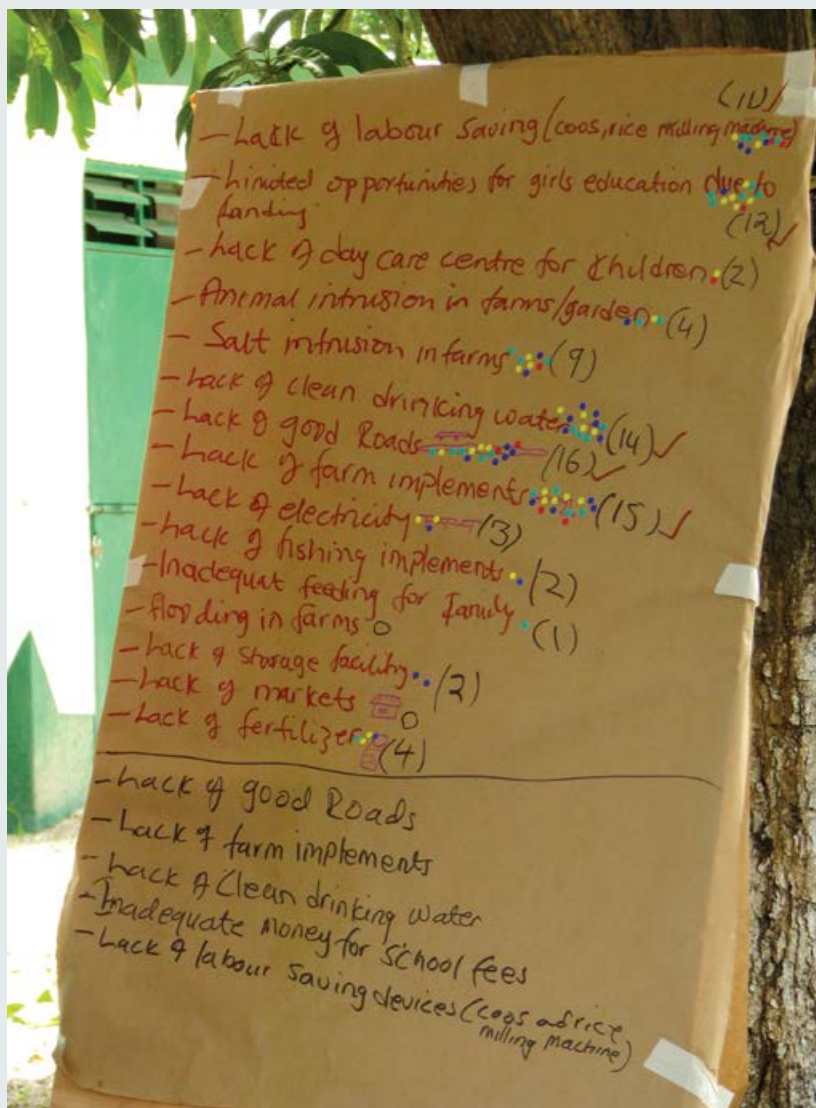 (11)✓
- Lack of labour saving (coos, rice milling machine)
- Limited opportunities for girls education due to
funding
(12)✓
- Lack of day care centre for Children (2)
- Animal intrusion in farms/garden (4)
- Salt intrusion in farms (9)
- Lack of clean drinking water (14)✓
- Lack of good Roads (16)✓
- Lack of farm implements (15)✓
- Lack of electricity (3)
- Lack of fishing implements (2)
- Inadequat feeding for family (1)
- flooding in farms 0
- Lack of storage facility (2)
- Lack of markets 0
- Lack of fertilizer (4)
- Lack of good Roads
- Lack of farm implements
- Lack of Clean drinking water
- Inadequate money for school fees
- Lack of labour saving devices (coos ad rice
milling machine)